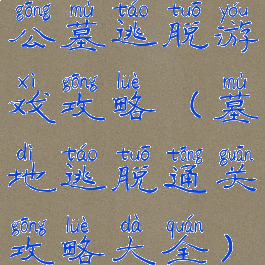 gōng mù táo tuō yóu
公墓逃脱游
xì gōng lüè mù
戏攻略（墓
dì táo tuō tōng guān
地逃脱通关
gōng lüè dà quán
攻略大全）